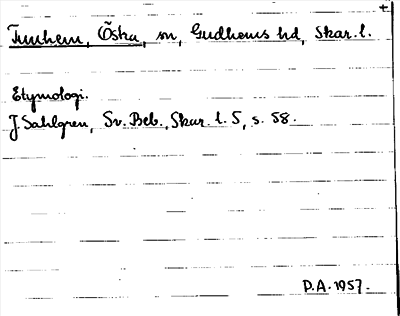 +
Tunhem, Östra, sn, Gudhems hd, Skar. l.
Etymologi.
J Sahlgren, Sv. Beb., Skar. l. 5, s. 58.
P.A. 1957.